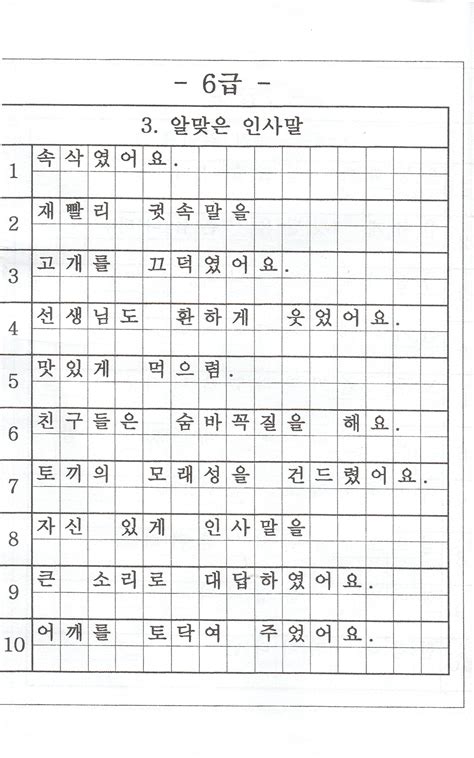 - 6급 -
3. 알맞은 인사말
1 속삭였어요.
2 재빨리 귓속말을
3 고개를 끄덕였어요.
4 선생님도 환하게 웃었어요.
5 맛있게 먹으렴.
6 친구들은 숨바꼭질을 해요.
7 토끼의 모래성을 건드렸어요.
8 자신 있게 인사말을
9 큰 소리로 대답하였어요.
10 어깨를 토닥여 주었어요.